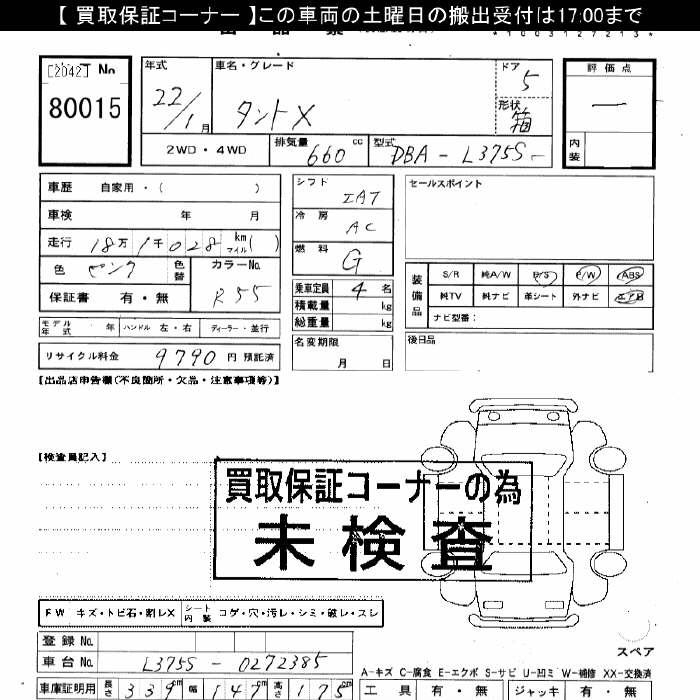 【 買取保証コーナー 】この車両の土曜日の搬出受付は17:00まで
*1003127213*
[2042] No
80015
年式 22/1月
車名・グレード タントX
ドア 5
形状 箱
評価点 —
内装
2WD・4WD
排気量 660 cc
型式 DBA - L375S -
車歴 自家用・( )
車検 年 月
走行 18万1千028 km マイル ( )
色 ピンク 色替 カラーNo. R55
保証書 有・無
シフト IAT
冷房 AC
燃料 G
乗車定員 4 名
積載量 kg
総重量 kg
セールスポイント
装備品
S/R 純A/W P/S P/W ABS
純TV 純ナビ 革シート 外ナビ エアB
ナビ型番:
モデル年式 年 ハンドル 左・右 ディーラー・並行
リサイクル料金 9790 円 預託済
名変期限 月 日
後日品
【出品店申告欄(不良箇所・欠品・注意事項等)】
【検査員記入】
買取保証コーナーの為
未検査
FW キズ・トビ石・割レX シート内装 コゲ・穴・汚レ・シミ・破レ・スレ
登録No.
車台No. L375S - 0272385
スペア
A-キズ C-腐食 E-エクボ S-サビ U-凹ミ W-補修 XX-交換済
車庫証明用 長さ 339cm 幅 147cm 高さ 175cm
工具 有・無 ジャッキ 有・無